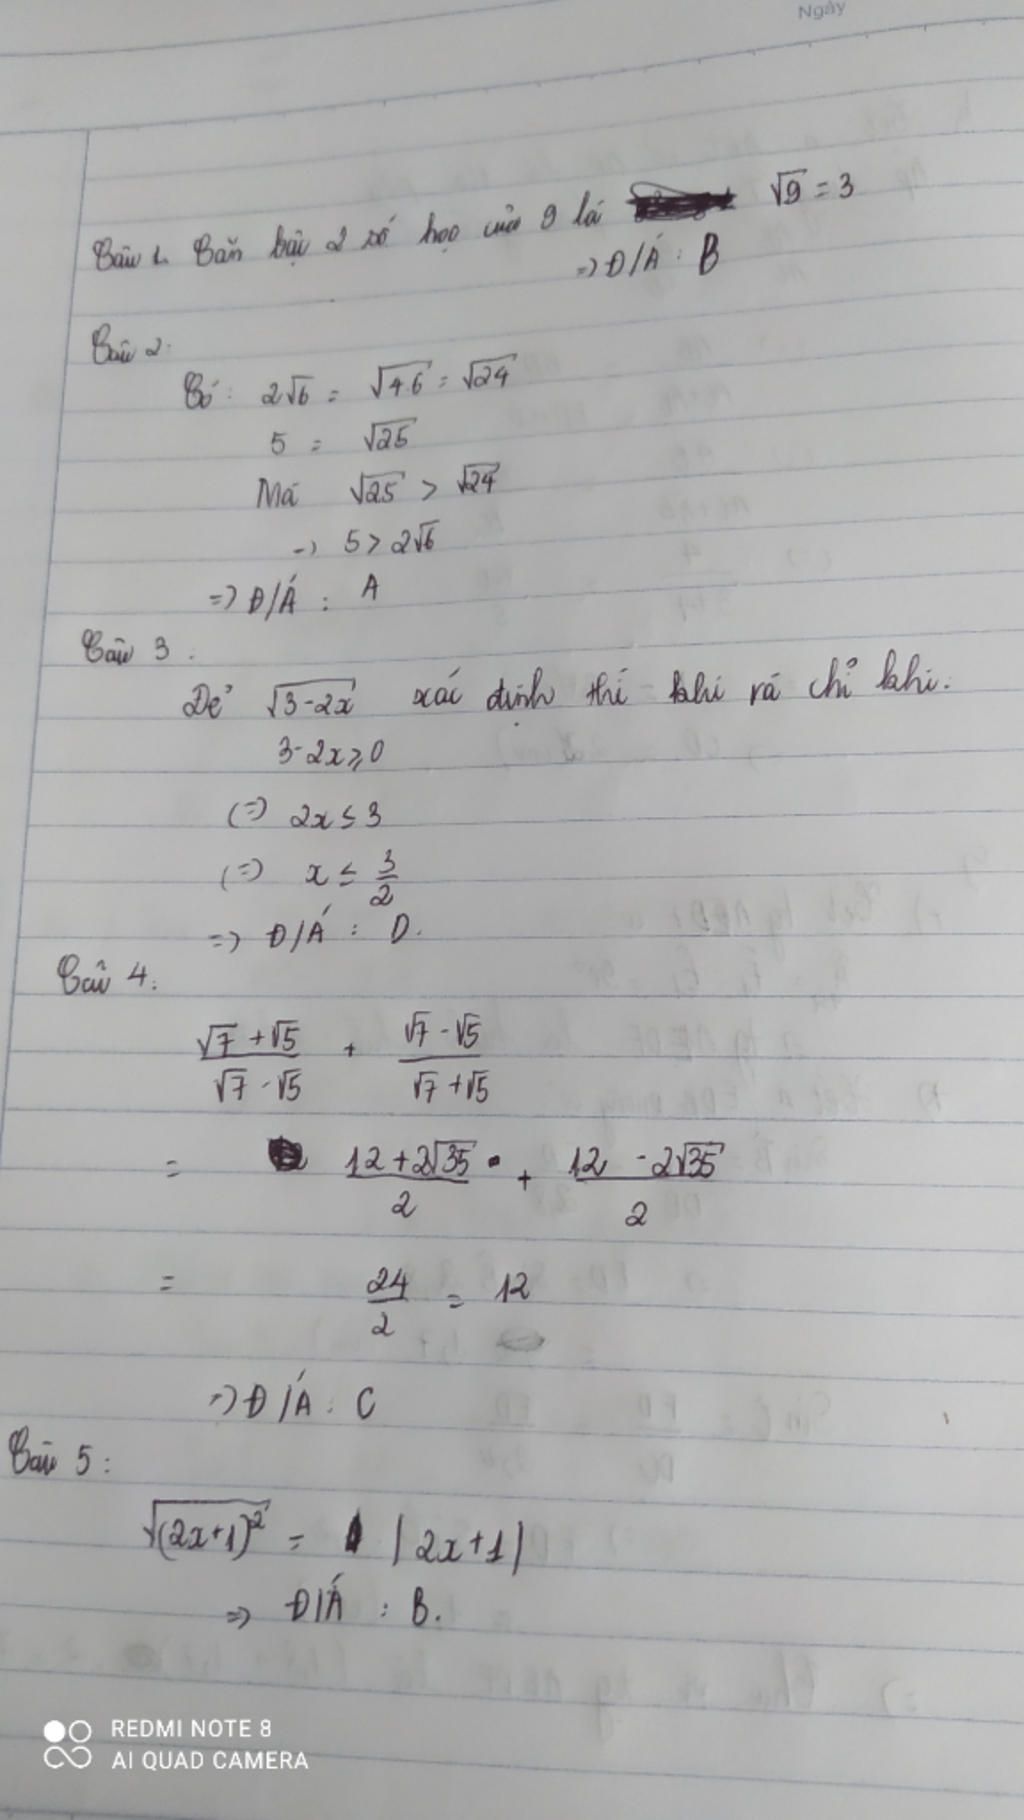 Ngày
Câu 1. Căn bậc 2 số học của 9 là √9 = 3
=> Đ/Á : B
Câu 2:
Có: 2√6 = √4.6 = √24
5 = √25
Mà √25 > √24
-> 5 > 2√6
=> Đ/Á : A
Câu 3 :
Để √3-2x xác định thì khi và chỉ khi.
3-2x ≥ 0
(=) 2x ≤ 3
(=) x ≤ 3/2
=> Đ/Á : D.
Câu 4:
(√7 + √5)/(√7 - √5) + (√7 - √5)/(√7 + √5)
= (12 + 2√35)/2 + (12 - 2√35)/2
= 24/2 = 12
=> Đ/Á : C
Câu 5 :
√(2x+1)² = |2x+1|
=> Đ/Á : B.
REDMI NOTE 8
AI QUAD CAMERA